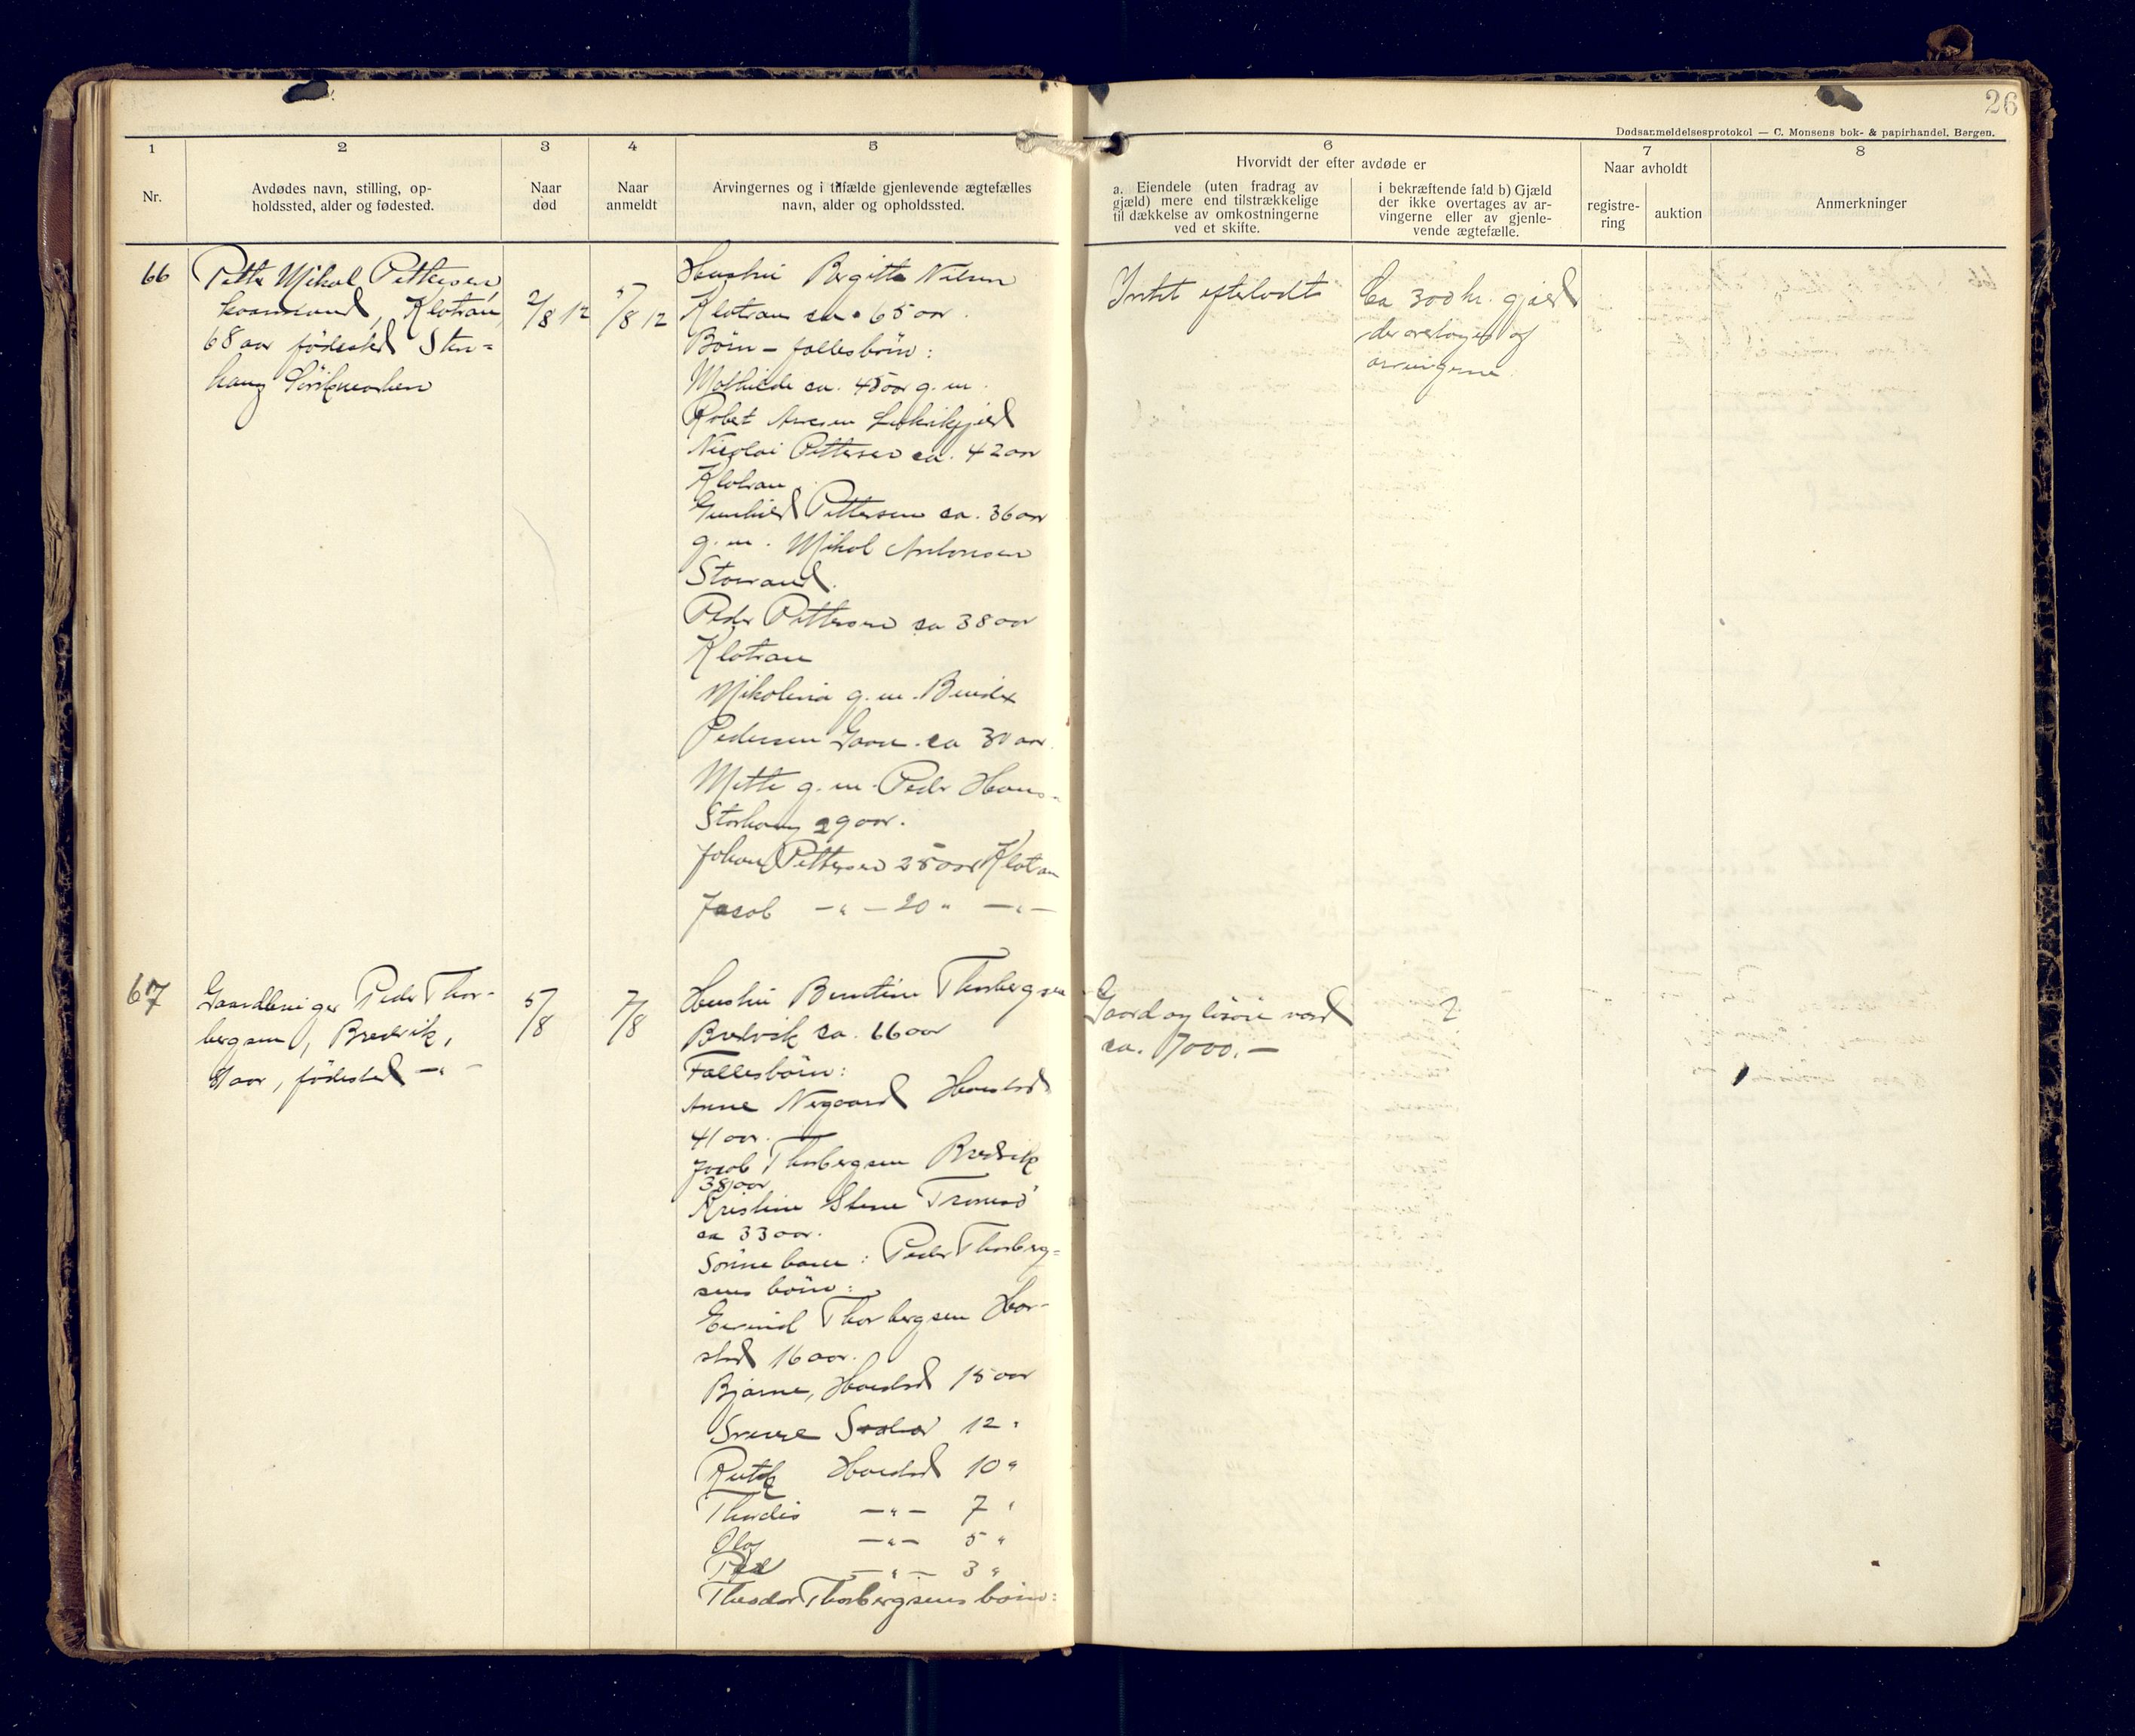 26
Dødsanmeldelsesprotokol — C. Monsens bok- & papirhandel, Bergen.
1
2
3
4
5
6
7
8
Nr.
Avdødes navn, stilling, op-
holdssted, alder og fødested.
Naar
død
Naar
anmeldt
Arvingernes og i tilfælde gjenlevende ægtefælles
navn, alder og opholdssted.
Hvorvidt der efter avdøde er
a. Eiendele (uten fradrag av
gjæld) mere end tilstrækkelige
til dækkelse av omkostningerne
ved et skifte.
i bekræftende fald b) Gjæld
der ikke overtages av ar-
vingerne eller av gjenle-
vende ægtefælle.
Naar avholdt
registre-
ring
auktion
Anmerkninger
66
Petter Mikal Pettersen
kaarmand, Klotran,
68 aar fødested Sten=
haug
2/8 12
5/8 12
Hustru Bergitte Nilsen
Klotran ca. 65 aar.
Børn - fællesbørn:
Mathilde ca. 45 aar g. m.
Robert
Nicolai Pettersen ca. 42 aar
Klotran.
Gunhild Pettersen ca. 36 aar
g. m. Mikal Antonsen
Storrand.
Peder Pettersen ca 38 aar
Klotran
Mikolina g. m. Bendix
Pedersen ca 30 aar.
Mette g. m. Peder Hans-
Storhaug 29 aar.
Johan Pettersen 25 aar Klotran
Jacob —"— 20 " —"—
Intet efterladt
Ca 300 kr. gjæld
der overtages af
arvingerne.
67
Gaardbruger Peder Thor-
bergsen, Bredvik,
aar, fødested —"—
5/8
7/8
Hustru Berntine Thorbergsen
Bredvik ca. 66 aar
Fællesbørn:
Anne Nergaard Harstad
41 aar.
Jacob Thorbergsen Bredvik
38 aar
Kristine Stene Tromsø
ca 33 aar.
Sønnebørn: Peder Thorberg=
sens børn:
Eivind Thorbergsen Har-
stad 16 aar.
Bjarne, Harstad 15 aar
Sverre 12 "
Ruth Harstad 10 "
Thordis —"— 7 "
Olaf —"— 5 "
—"— 3 "
Theodor Thorbergsens børn:
Gaard og løsøre værd
ca. 7000.—
?